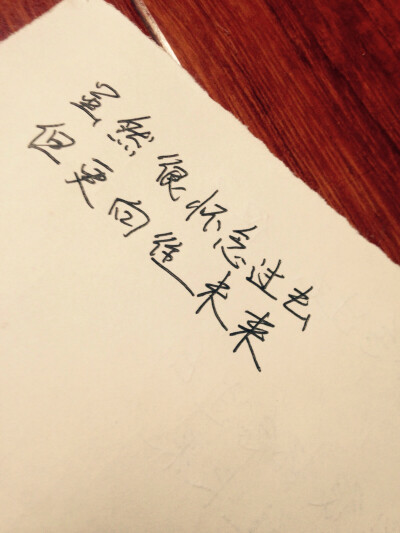 虽然很怀念过去
但更向往未来